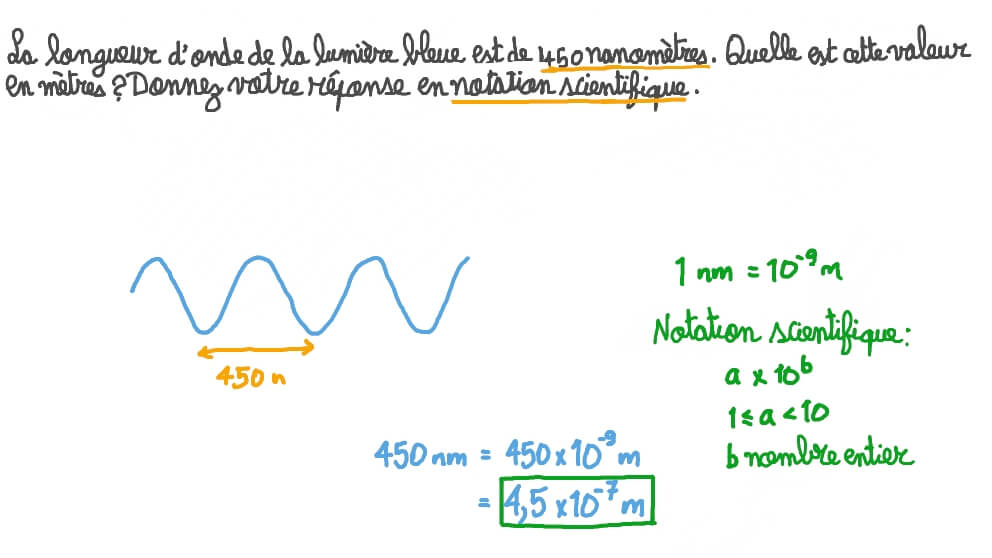 La longueur d'onde de la lumière bleue est de 450 nanomètres. Quelle est cette valeur
en mètres ? Donnez votre réponse en notation scientifique.
1 nm = 10⁻⁹ m
Notation scientifique :
a × 10ᵇ
1 ≤ a < 10
b nombre entier
450 n
450 nm = 450 × 10⁻⁹ m
= 4,5 × 10⁻⁷ m